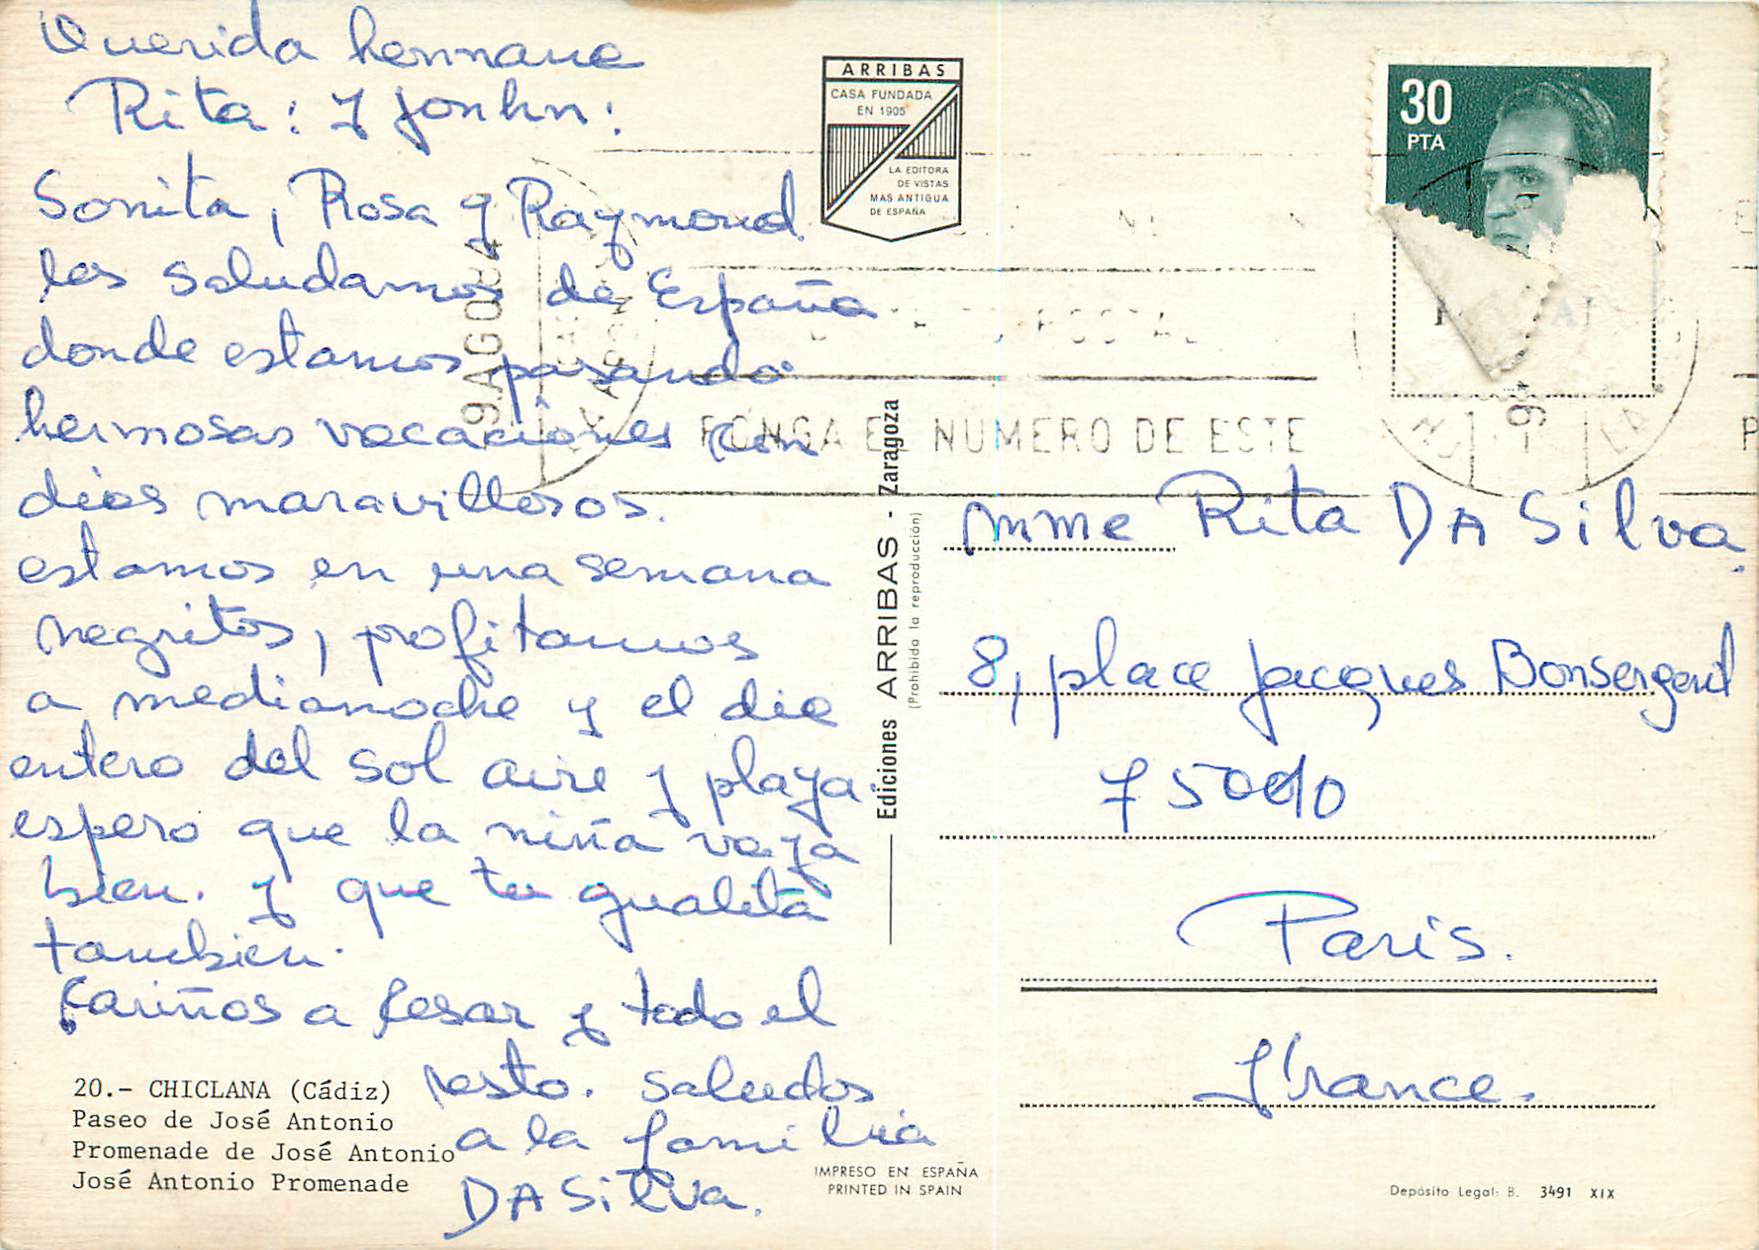 Querida hermana
Rita: y Jonhn:
Sonita, Rosa y Raymond
les saludamos de España
donde estamos pasando
hermosas vacaciones con
dias maravillosos.
estamos en una semana
negritos, profitamos
a medianoche y el dia
entero del sol aire y playa.
espero que la niña vaya
bien. y que tu gualita
tambien.
Cariños a Cesar y todo el
resto. saludos
a la familia
DA Silva.
20.- CHICLANA (Cádiz)
Paseo de José Antonio
Promenade de José Antonio
José Antonio Promenade
ARRIBAS
CASA FUNDADA
EN 1905
LA EDITORA
DE VISTAS
MAS ANTIGUA
DE ESPAÑA
Ediciones ARRIBAS - Zaragoza
(Prohibida la reproducción)
IMPRESO EN ESPAÑA
PRINTED IN SPAIN
30
PTA
9 AGO 84
PONGA EL NUMERO DE ESTE
Mme Rita DA Silva.
8, place Jacques Bonsergent
75010
Paris.
France.
Depósito Legal: B. 3491 XIX